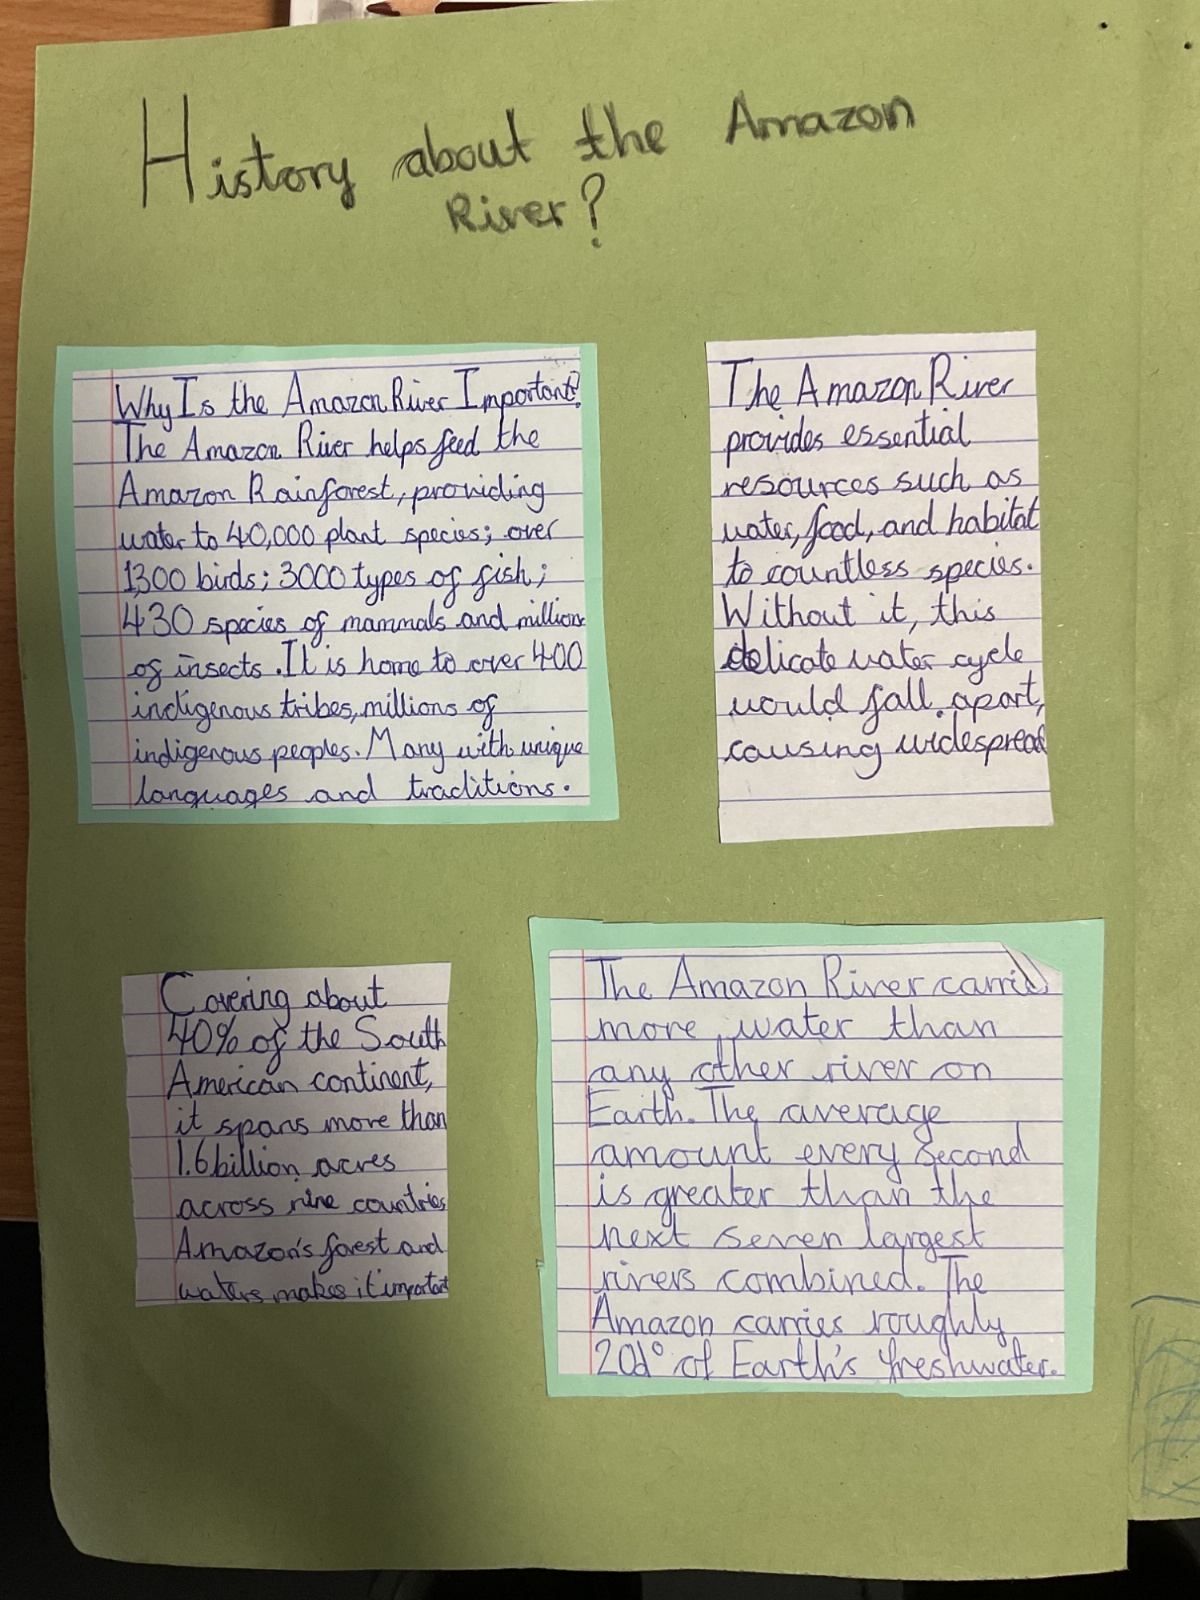 History about the Amazon
River?
Why Is the Amazon River Important?
The Amazon River helps feed the
Amazon Rainforest, providing
water to 40,000 plant species; over
1300 birds; 3000 types of fish;
430 species of mammals and million
of insects. It is home to over 400
indigenous tribes, millions of
indigenous peoples. Many with unique
languages and traditions.
The Amazon River
provides essential
resources such as
water, food, and habitat
to countless species.
Without it, this
delicate water cycle
would fall apart,
causing widespread
Covering about
40% of the South
American continent,
it spans more than
1.6 billion acres
across nine countries
Amazon's forest and
waters makes it important
The Amazon River carries
more water than
any other river on
Earth. The average
amount every second
is greater than the
next seven largest
rivers combined. The
Amazon carries roughly
20% of Earth's freshwater.